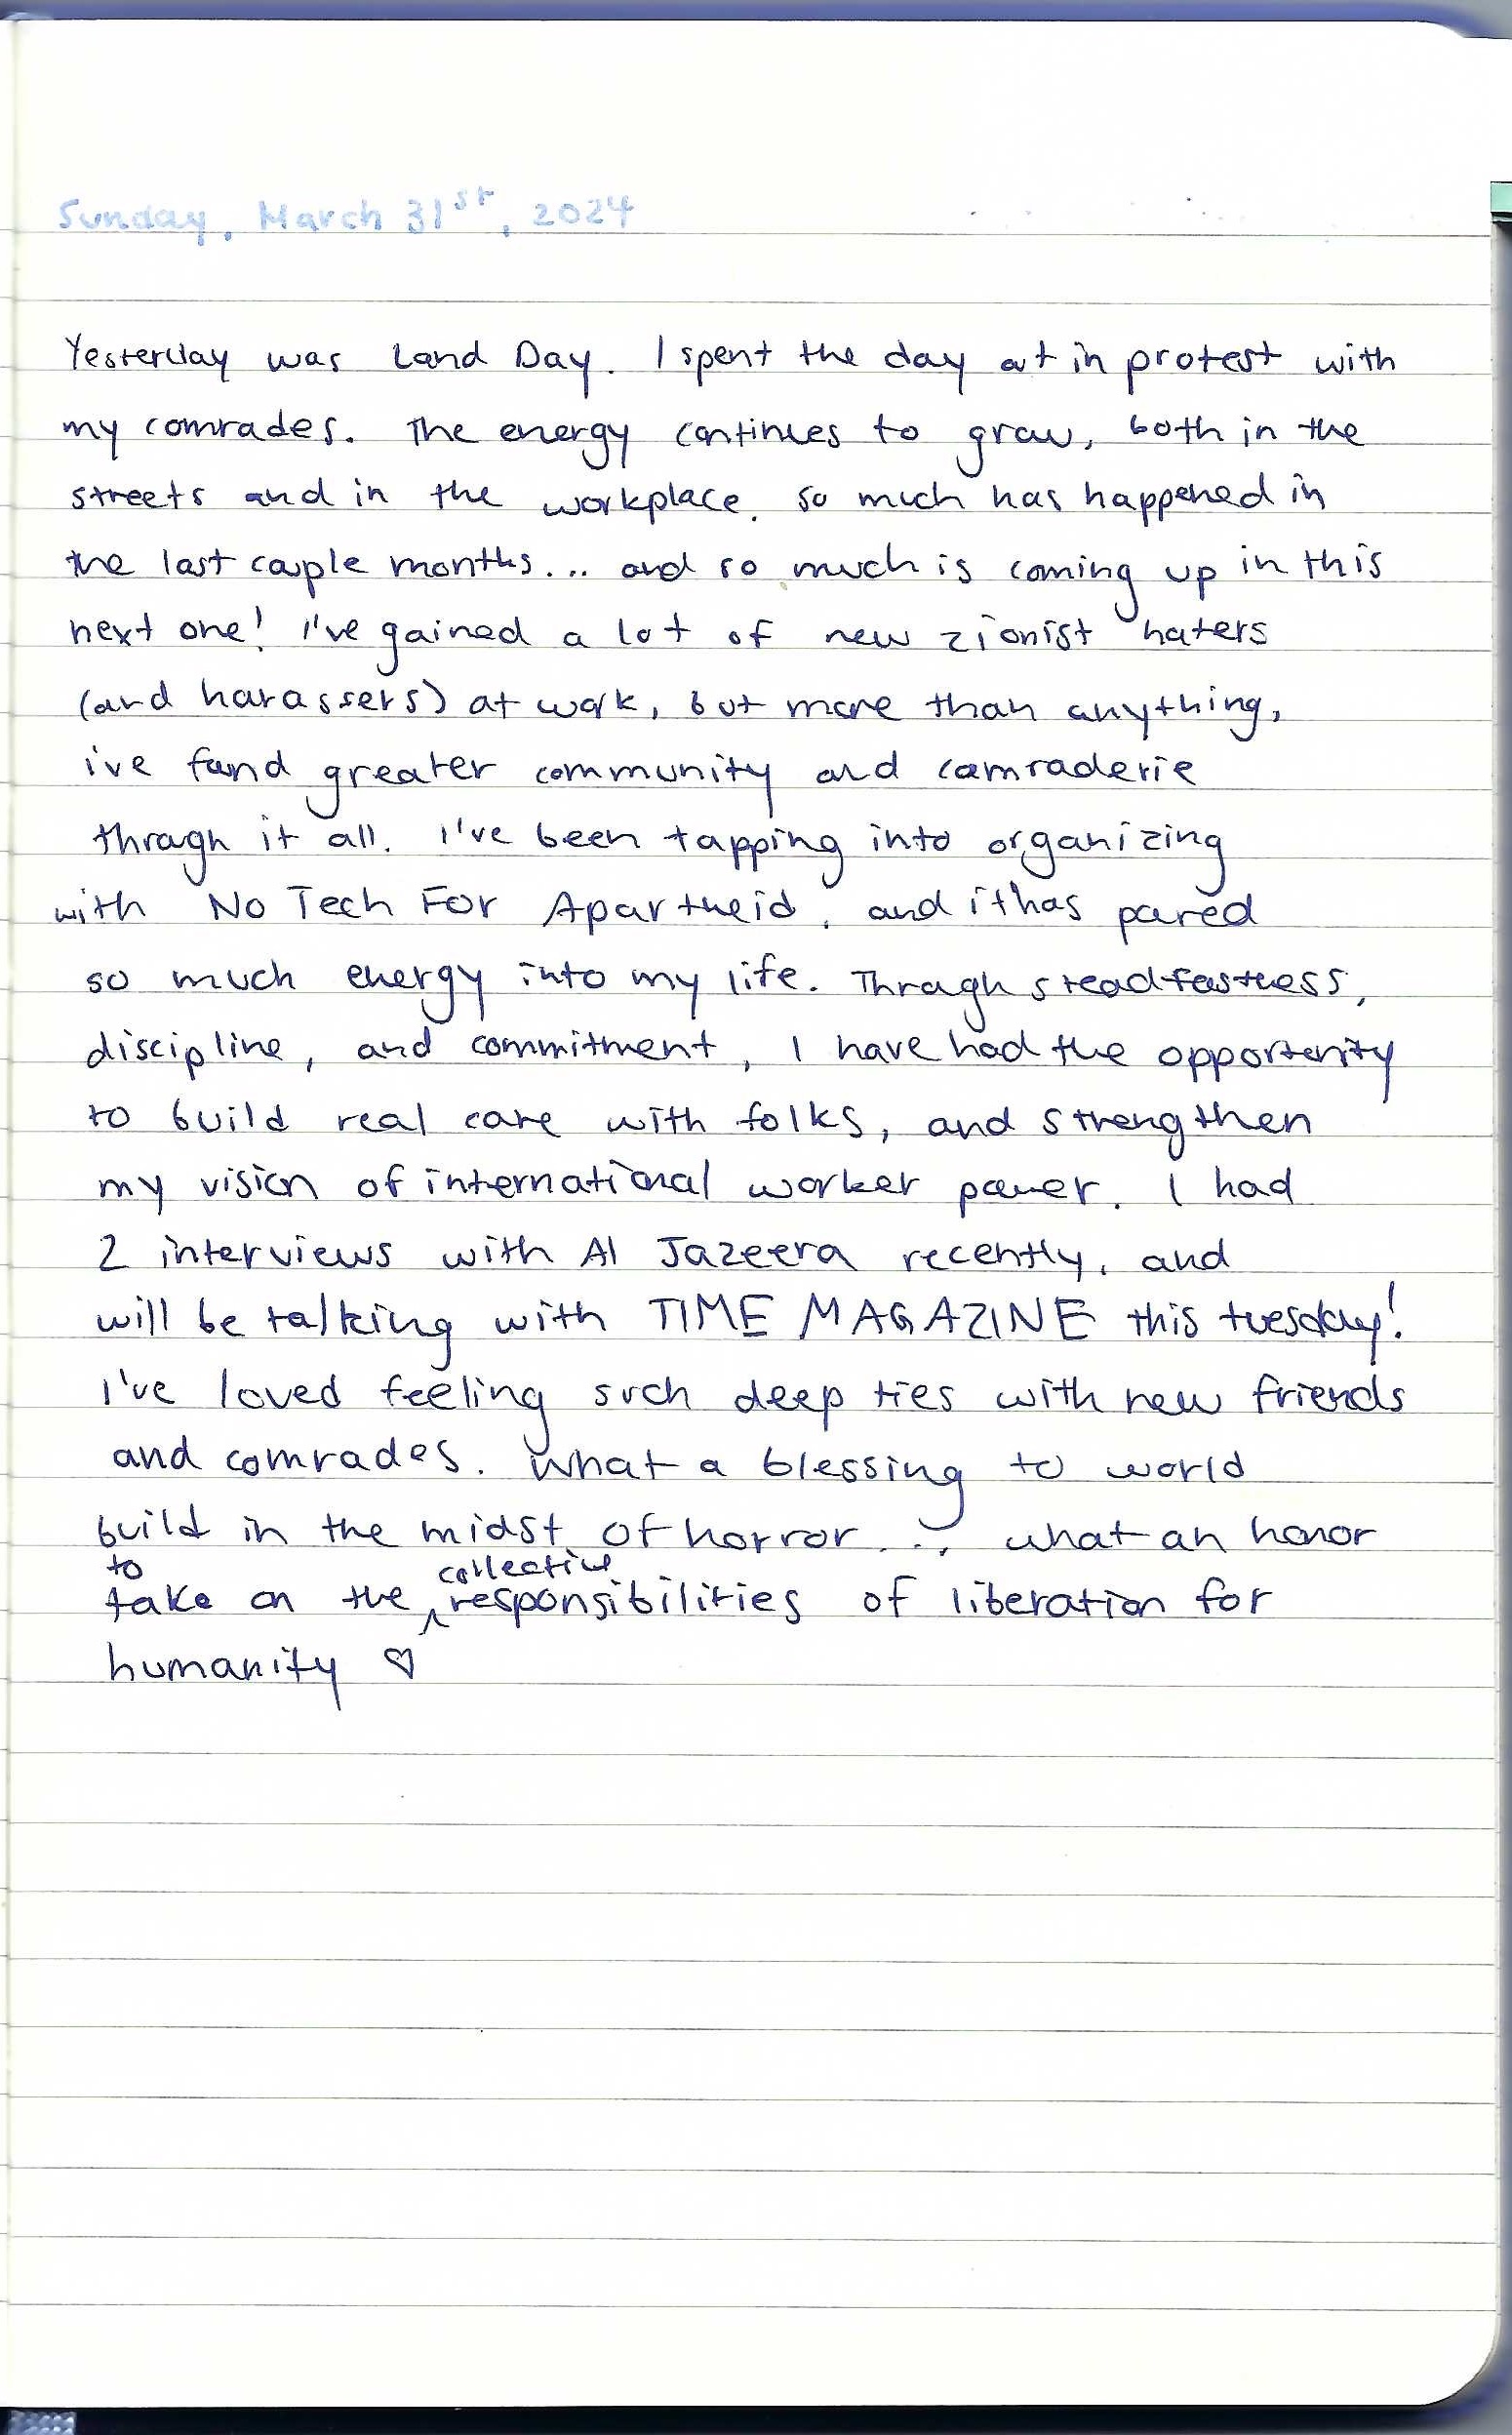 Sunday, March 31st, 2024
Yesterday was Land Day. I spent the day out in protest with
my comrades. The energy continues to grow, both in the
streets and in the workplace. so much has happened in
the last couple months... and so much is coming up in this
next one! I've gained a lot of new zionist haters
(and harassers) at work, but more than anything,
i've found greater community and camraderie
through it all. I've been tapping into organizing
with No Tech For Apartheid, and it has poured
so much energy into my life. Through steadfastness,
discipline, and commitment, I have had the opportunity
to build real care with folks, and strengthen
my vision of international worker power. I had
2 interviews with Al Jazeera recently, and
will be talking with TIME MAGAZINE this tuesday!
I've loved feeling such deep ties with new friends
and comrades. What a blessing to world
build in the midst of horror... what an honor
to take on the collective responsibilities of liberation for
humanity ♡